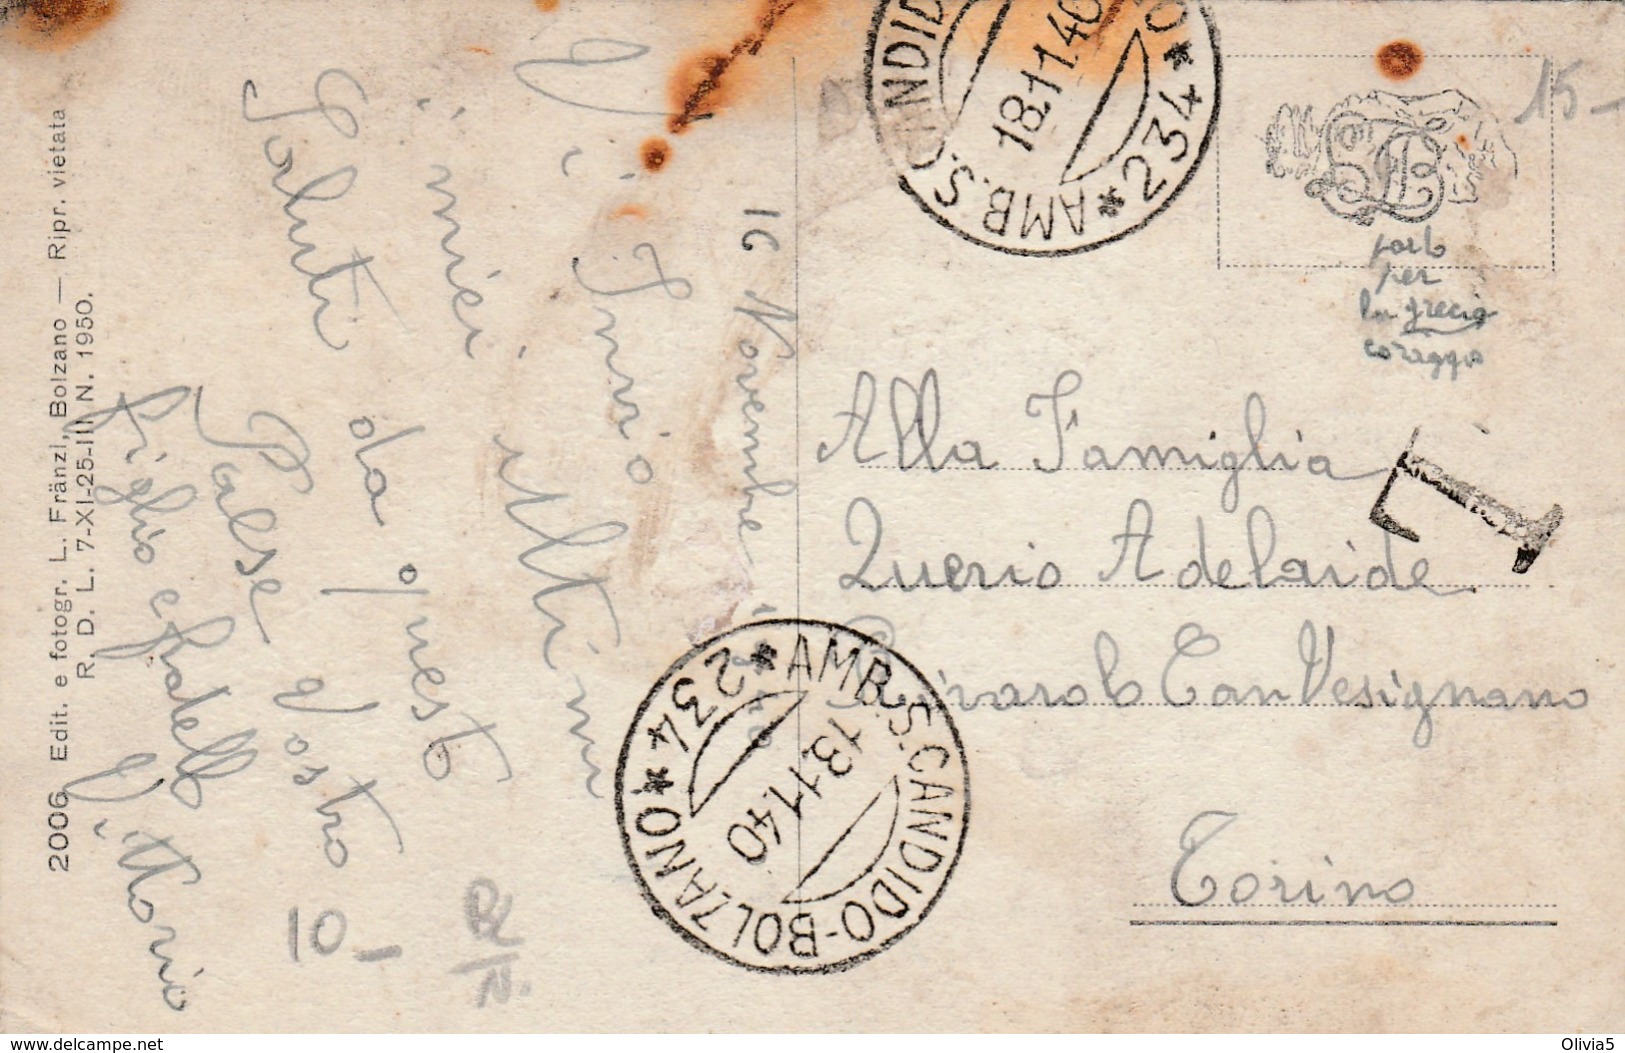 2006 Edit. e fotogr. L. Fränzl, Bolzano — Ripr. vietata
R. D. L. 7-XI-25-III N. 1950.
16 Novembre 1940
Vi Invio
i miei ultimi
Saluti da questo
Paese Vostro
figlio e fratello
Vittorio
AMB. S. CANDIDO
18.11.40
* 234 *
AMB. S. CANDIDO-BOLZANO
18.11.40
* 234 *
15-
parto
per
la grecia
coraggio
T
Alla Famiglia
Querio Adelaide
Rivarolo Canavesignano
Torino
10-
www.delcampe.net
Olivia5